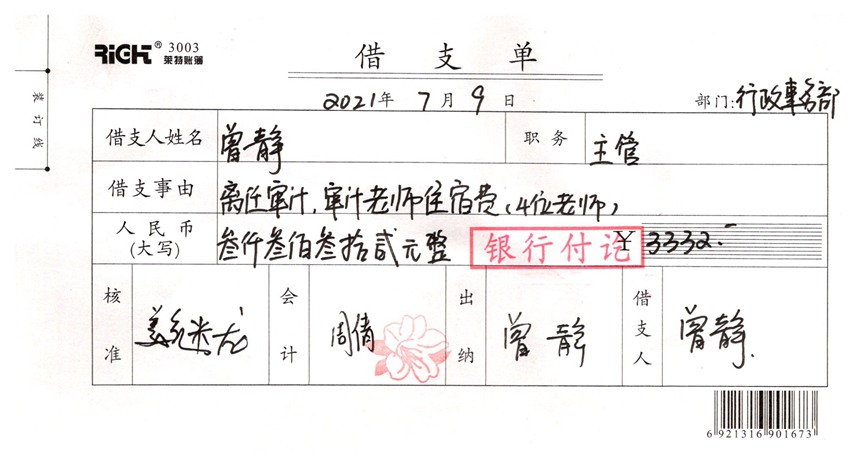 RiGHT® 3003
莱特账簿
借支单
2021年 7月 9日
部门:行政事务部
装订线
借支人姓名 曾静 职务 主管
借支事由 离任审计,审计老师住宿费(4位老师)
人民币
(大写) 叁仟叁佰叁拾贰元整 ¥3332.-
银行付讫
核准 会计 周倩 出纳 曾静 借支人 曾静
6 921316 901673